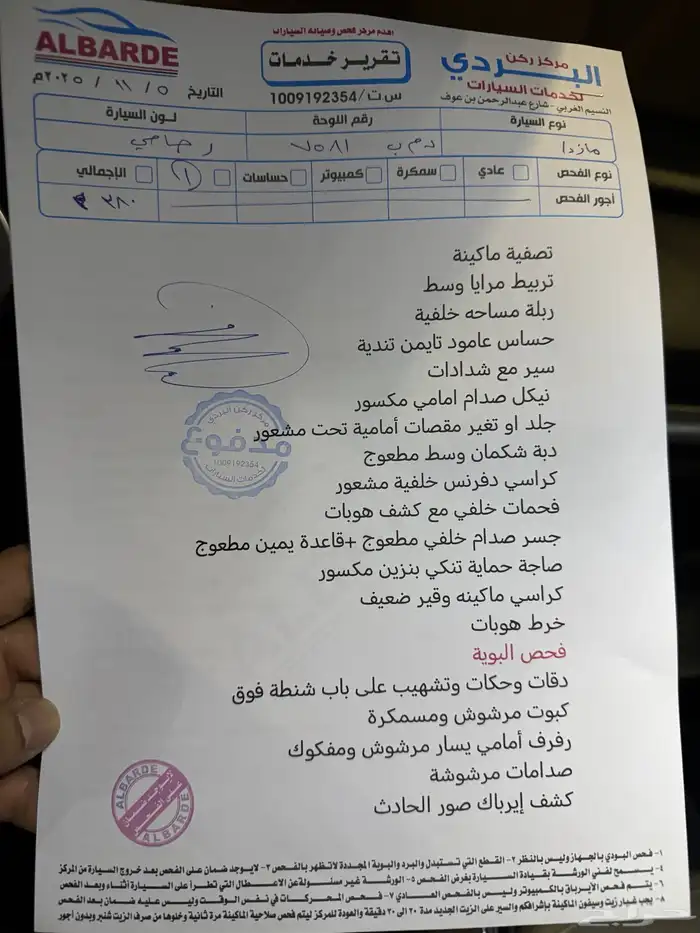 ALBARDE
اقدم مركز فحص وصيانة السيارات
تقرير خدمات
س ت/1009192354
مركز ركن
البردي
لخدمات السيارات
النسيم الغربي - شارع عبدالرحمن بن عوف
التاريخ ٥ / ١١ / ٢٠٢٥م
نوع السيارة رقم اللوحة لـون السيارة
مازدا ٧٥٨١ رصاصي
نوع الفحص عادي سمكرة كمبيوتر حساسات الإجمالي
أجور الفحص ٣٨٠
تصفية ماكينة
تربيط مرايا وسط
ربلة مساحه خلفية
حساس عامود تايمن تندية
سير مع شدادات
نيكل صدام امامي مكسور
جلد او تغير مقصات أمامية تحت مشعور
دبة شكمان وسط مطعوج
كراسي دفرنس خلفية مشعور
فحمات خلفي مع كشف هوبات
جسر صدام خلفي مطعوج +قاعدة يمين مطعوج
صاجة حماية تنكي بنزين مكسور
كراسي ماكينه وقير ضعيف
خرط هوبات
فحص البوية
دقات وحكات وتشهيب على باب شنطة فوق
كبوت مرشوش ومسمكرة
رفرف أمامي يسار مرشوش ومفكوك
صدامات مرشوشة
كشف إيرباك صور الحادث
مركز ركن البردي
مدفوع
1009192354
لخدمات السيارات
ALBARDE
ALBARDE
١- فحص البودي بالجهاز وليس بالنظر ٢- القطع التي تستبدل والبرد والبوية المجددة لاتظهر بالفحص ٣- لايوجد ضمان على الفحص بعد خروج السيارة من المركز
٤- يسمح لفني الورشة بقيادة السيارة بغرض الفحص ٥- الورشة غير مسئولة عن الاعطال التي تطرأ على السيارة أثناء وبعد الفحص
٦- يتم فحص الأيرباق بالكمبيوتر وليس بالفحص العادي ٧- فحص المحركات في نفس الوقت وليس عليه ضمان بعد الفحص
٨- يجب غيار زيت وسيفون الماكينة بإشرافكم والسير على الزيت الجديد مدة ٢٠ الى ٣٠ دقيقة والعودة للمركز ليتم فحص صلاحية الماكينة مرة ثانية وخلوها من صرف الزيت شنبر وبدون أجور